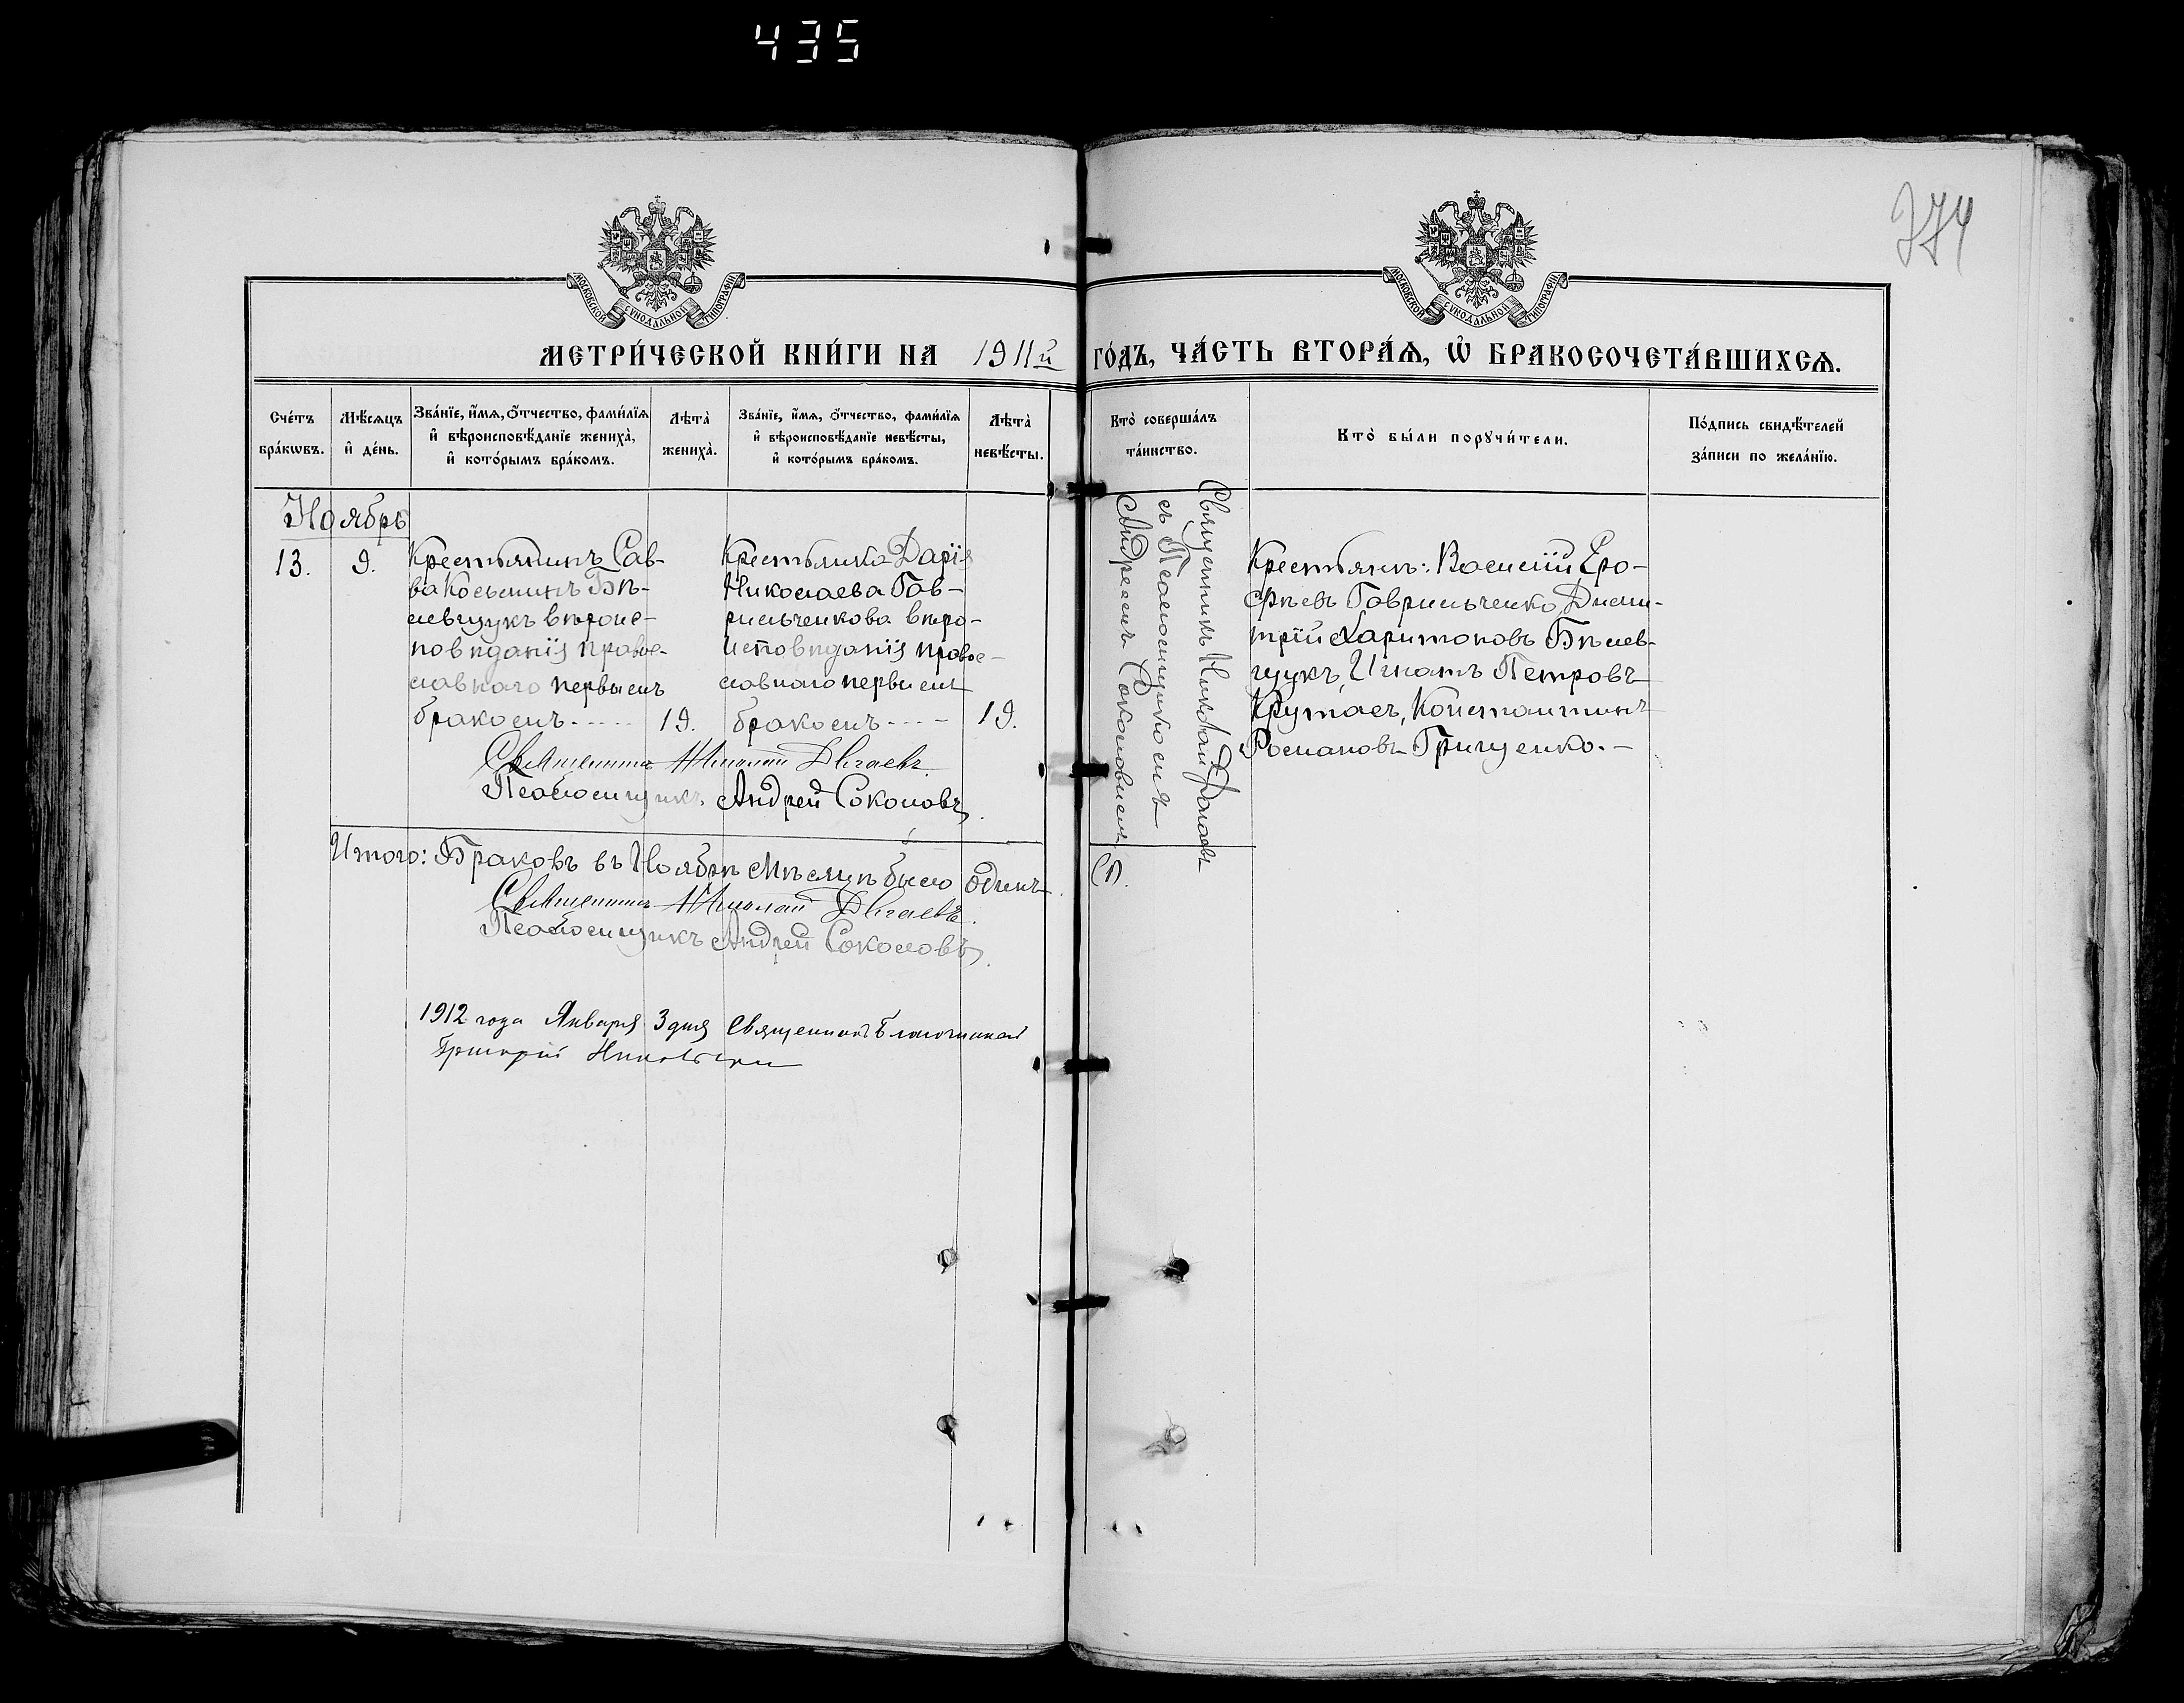 435
374
МОСКОВСКОЙ СѴНОДАЛЬНОЙ ТИПОГРАФІИ
МОСКОВСКОЙ СѴНОДАЛЬНОЙ ТИПОГРАФІИ
МЕТРИ́ЧЕСКОЙ КНИ́ГИ НА 1911й ГО́ДЪ, ЧА́СТЬ ВТОРА́Ѧ, Ѡ҆ БРАКОСОЧЕТА́ВШИХСѦ.
Сче́тъ
бра́кѡвъ.
Мѣ́сѧцъ
и҆ де́нь.
Зва́нїе, и҆́мѧ, о҆́тчество, фами́лїѧ
и҆ вѣроисповѣ́данїе жениха̀,
и҆ кото́рымъ бра́комъ.
Лѣта̀
жениха̀.
Зва́нїе, и҆́мѧ, о҆́тчество, фами́лїѧ
и҆ вѣроисповѣ́данїе невѣ́сты,
и҆ кото́рымъ бра́комъ.
Лѣта̀
невѣ́сты.
Кто̀ соверша́лъ
та́инство.
Кто̀ бы́ли порꙋчи́тели.
По́дпись свидѣ́телей
за́писи по жела́нїю.
Ноябрь
13.
9.
Крестьянинъ Сав-
ва Косьминъ Бѣ-
левцукъ вѣроис-
повѣданія православ-
славнаго первымъ
бракомъ
19.
Крестьянка Дарія
Николаева Гав-
рильченкова вѣро-
исповѣданія право-
славнаго первымъ
бракомъ
19.
Священникъ Николай
съ Псаломщикомъ
Андреемъ Соколовымъ
Крестьяне: Василій Еро-
фѣевъ Гаврильченко, Дми-
трій Харитоновъ Бѣлев-
цукъ, Игнатъ Петровъ
Крутась, Константинъ
Романовъ Грищенко.
Священникъ Николай
Псаломщикъ Андрей Соколовъ.
Итого: Браковъ въ Ноябрѣ мѣсяцѣ было одинъ (1).
Священникъ Николай
Псаломщикъ Андрей Соколовъ.
1912 года Января 3 дня Священникъ Благочинный
Григорій